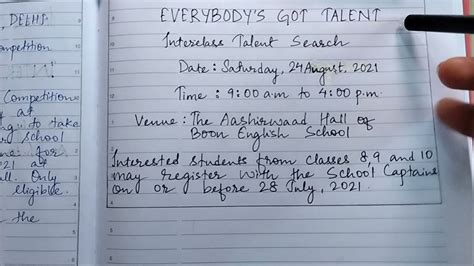 , DELHI
mpetition
Competition
at
ng to take
ur school
me for
21 at
all. Only
eligible.
the
EVERYBODY'S GOT TALENT
Interclass Talent Search
Date : Saturday, 24 August, 2021
Time : 9:00 a.m to 4:00 p.m.
Venue : The Aashirwaad Hall of
Boon English School
Interested students from classes 8,9 and 10
may register with the School Captains
on or before 28 July, 2021.